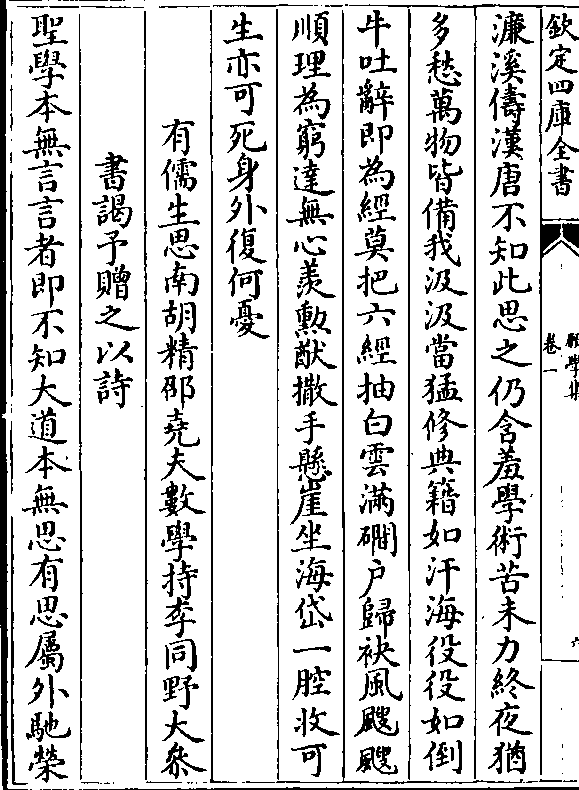 欽定四庫全書
卷一
六
濂溪儔漢唐不知此思之仍含羞學術苦未力終夜猶
多愁萬物皆備我汲汲當猛修典籍如汗海役役如倒
牛吐辭即為經莫把六經抽白雲滿磵户歸袂風颼颼
順理為窮達無心羨勲猷撒手懸崖坐海岱一腔收可
生亦可死身外復何憂
有儒生思南胡精邵堯夫數學持李同野大叅
書謁予贈之以詩
聖學本無言言者即不知大道本無思有思屬外馳榮